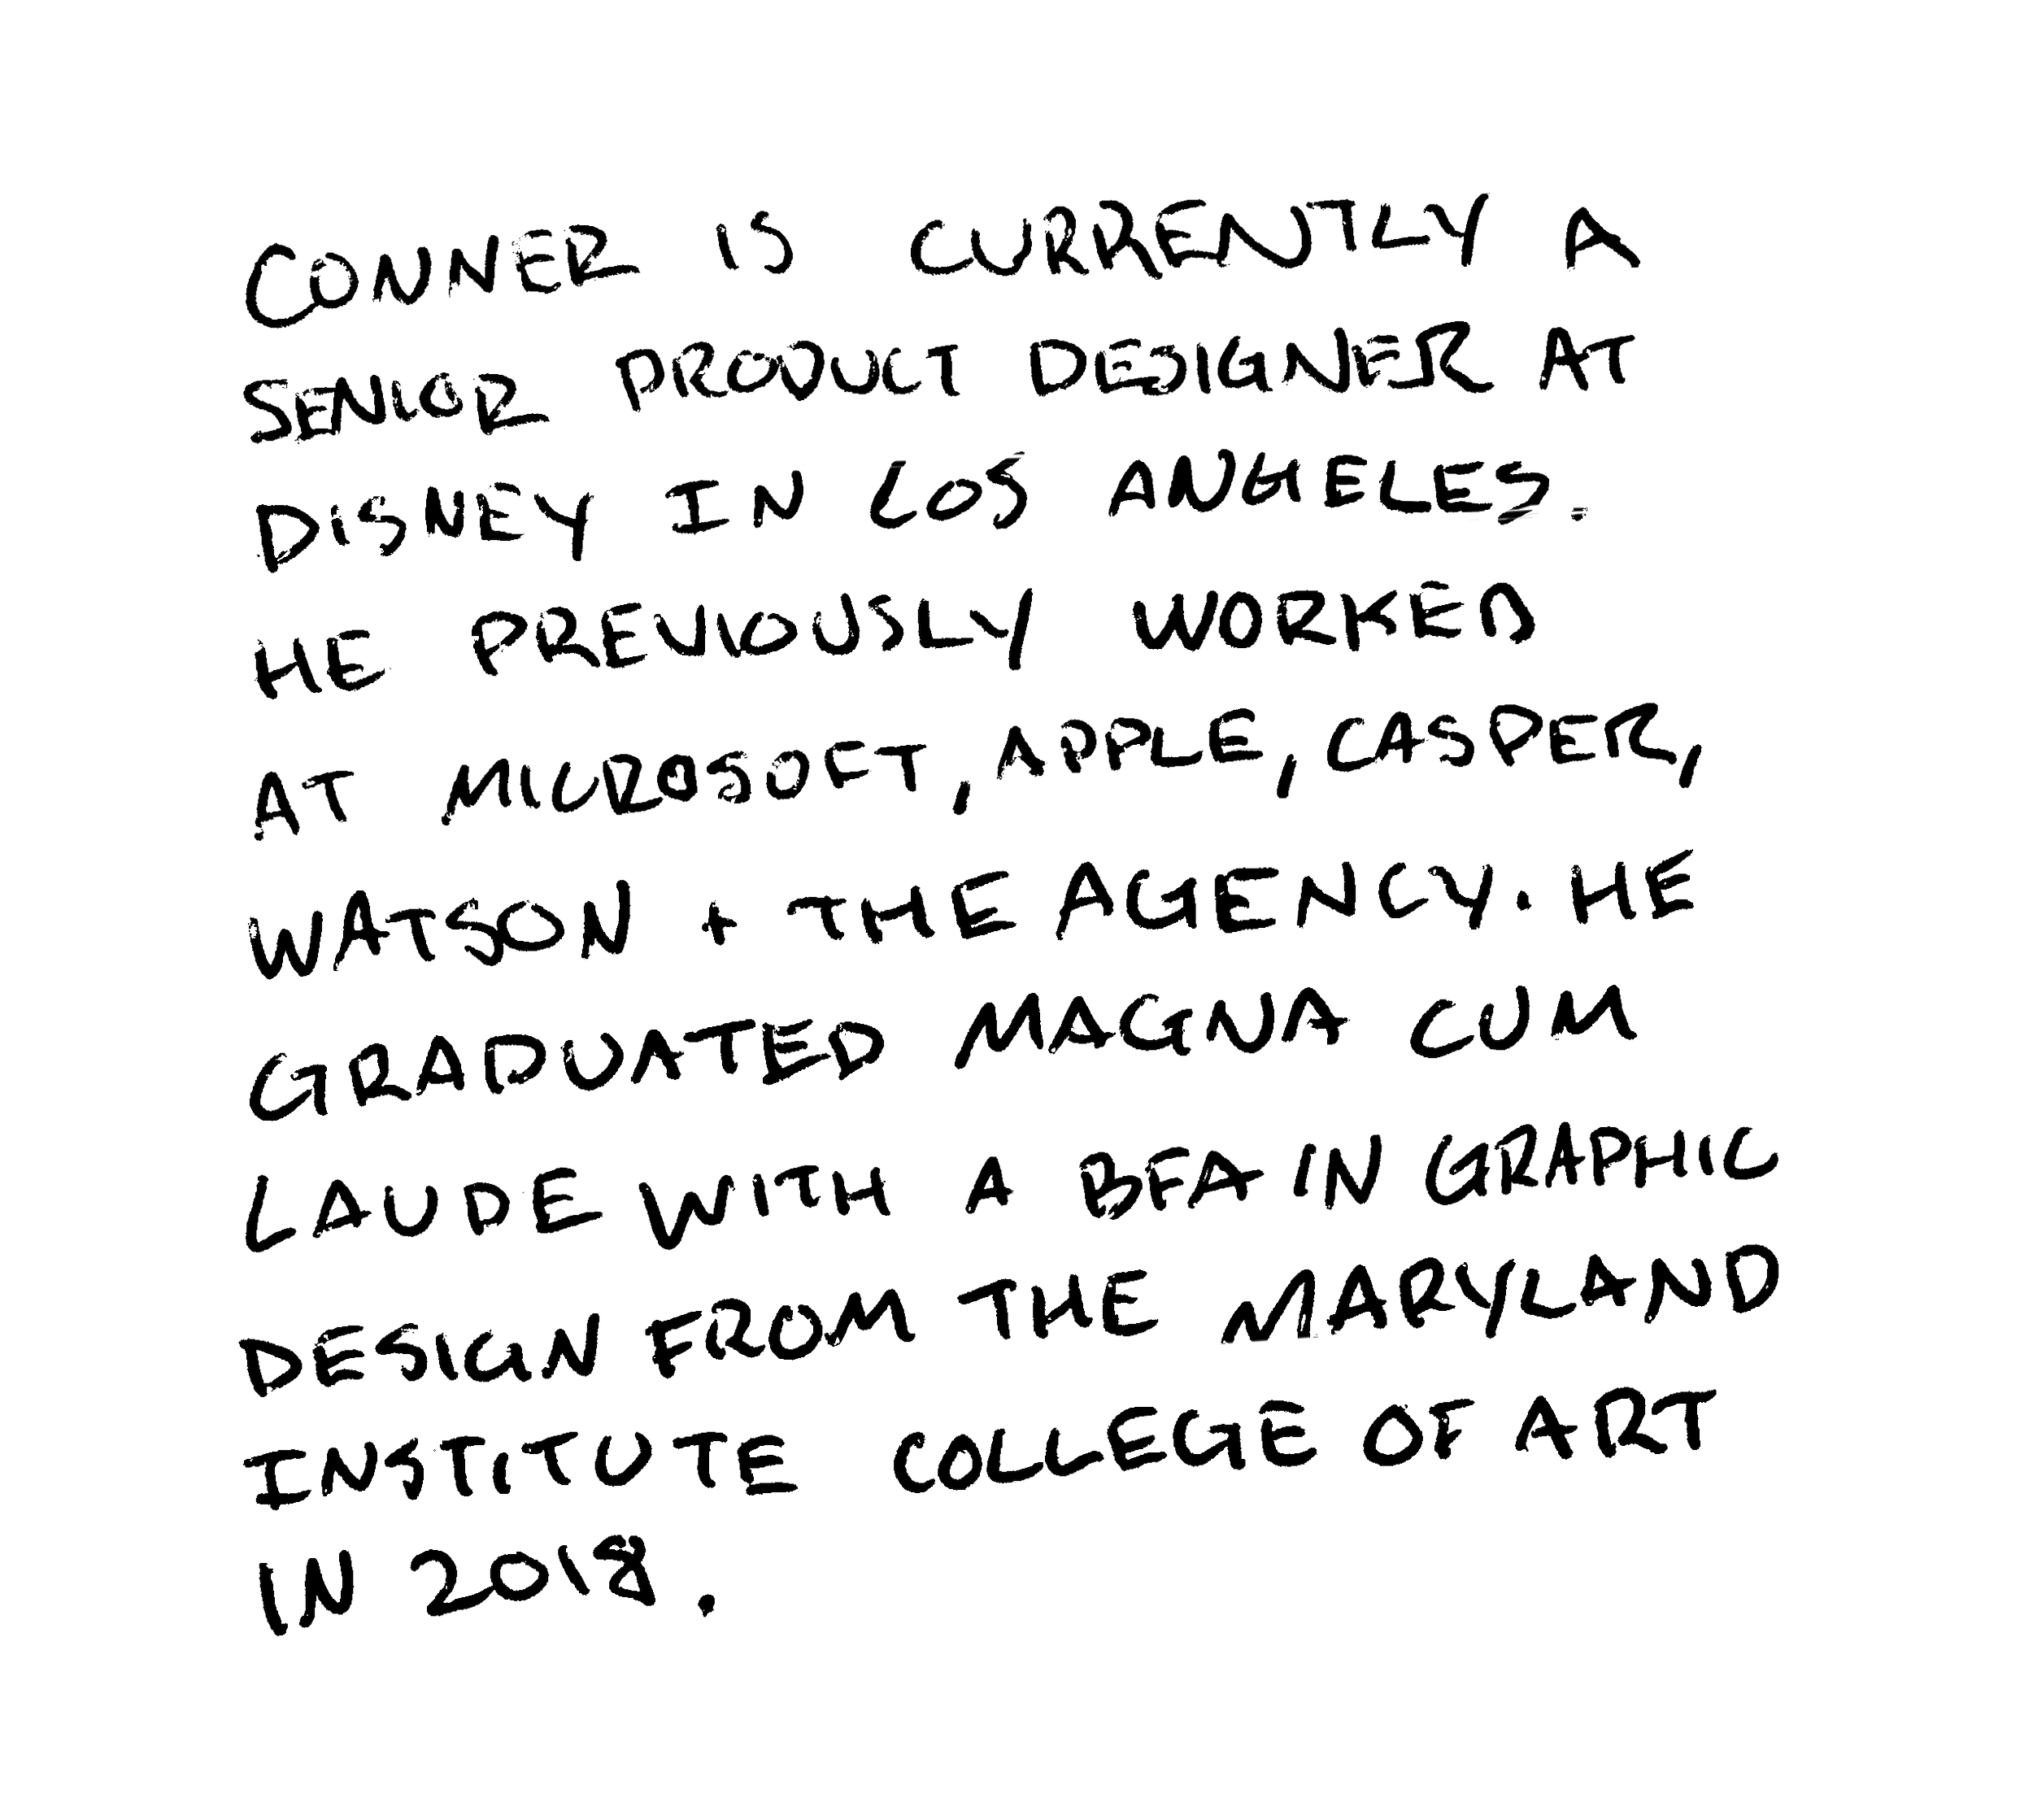 CONNER IS CURRENTLY A
SENIOR PRODUCT DESIGNER AT
DISNEY IN LOS ANGELES.
HE PREVIOUSLY WORKED
AT MICROSOFT, APPLE, CASPER,
WATSON + THE AGENCY. HE
GRADUATED MAGNA CUM
LAUDE WITH A BFA IN GRAPHIC
DESIGN FROM THE MARYLAND
INSTITUTE COLLEGE OF ART
IN 2018.